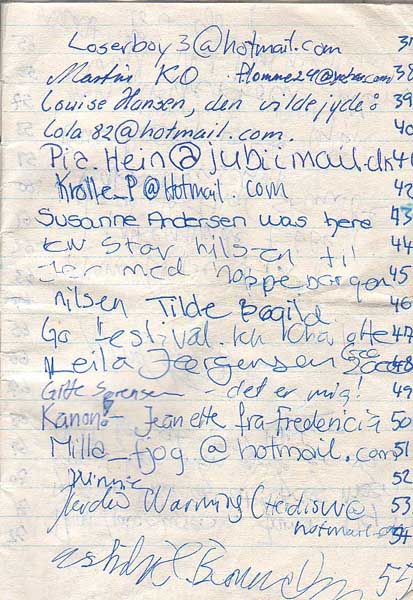 Loserboy3@hotmail.com
Martin KO 38
Louise Hansen, den vilde jyde 39
Lola82@hotmail.com. 40
Pia.Hein@jubiimail.dk 41
Krolle_P@Hotmail.com 42
Susanne Andersen was here 43
EN Stor hilsen til 44
jer med hoppeborgen 45
hilsen Tilde Bagild 46
Go festival. 47
Leila Jørgensen 48
Gitte Sørensen - det er mig! 49
Kanon! - Jeanette fra Fredericia 50
Milla_fjog@hotmail.com 51
Winnie 52
Heidi Warming (Heidiswa@ 53
hotmail.com 54
55